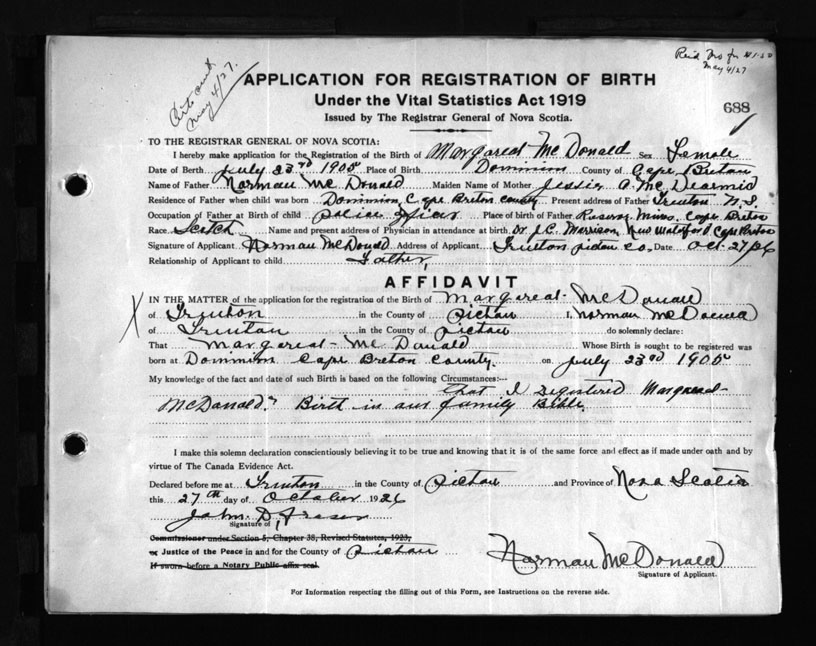 Reid
May 4/27
May 4/27.
APPLICATION FOR REGISTRATION OF BIRTH
Under the Vital Statistics Act 1919
Issued by The Registrar General of Nova Scotia.
688
TO THE REGISTRAR GENERAL OF NOVA SCOTIA:
I hereby make application for the Registration of the Birth of Margareat McDonald Sex Female
Date of Berth July 23rd 1905 Place of Birth Dominion County of Cape Breton
Name of Father Norman McDonald Maiden Name of Mother Jessie A. McDearmid
Residence of Father when child was born Dominion Cape Breton County Present address of Father Trenton N.S.
Occupation of Father at Birth of child Police Officer Place of birth of Father Reserve Mines Cape Breton
Race Scotch Name and present address of Physician in attendance at birth Dr. J.C. Morrison New Waterford Cape Breton
Signature of Applicant Norman McDonald Address of Applicant Trenton Co. Date Oct. 27/26
Relationship of Applicant to child Father,
AFFIDAVIT
IN THE MATTER of the application for the registration of the Birth of Margareat McDonald
of Trenton in the County of Pictou I, Norman McDonald
of Trenton in the County of Pictou do solemnly declare:
That Margareat McDonald Whose Birth is sought to be registered was
born at Dominion Cape Breton County. on July 23rd 1905
My knowledge of the fact and date of such Birth is based on the following Circumstances:—
that I registered Margareat
McDonald's Birth in our family Bible.
I make this solemn declaration conscientiously believing it to be true and knowing that it is of the same force and effect as if made under oath and by
virtue of The Canada Evidence Act.
Declared before me at Trenton in the County of Pictou and Province of Nova Scotia
this 27th day of October 1926
John D. Fraser
Signature of
Commissioner under Section 5, Chapter 38, Revised Statutes, 1923,
or Justice of the Peace in and for the County of Pictou
If sworn before a Notary Public affix seal
Norman McDonald
Signature of Applicant.
For Information respecting the filling out of this Form, see Instructions on the reverse side.